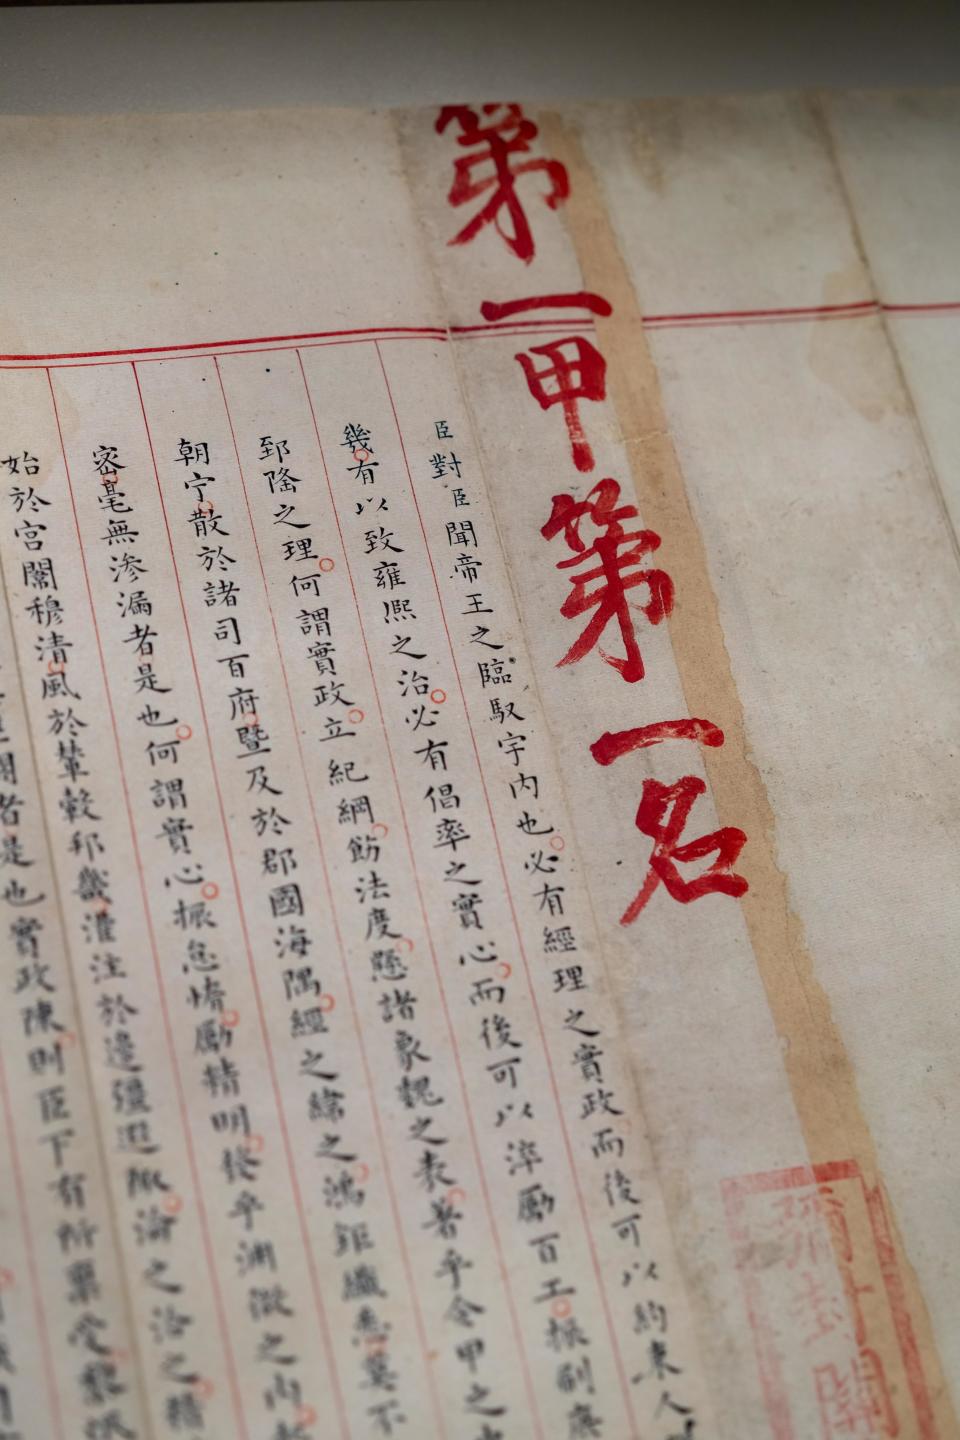 第一甲第一名
彌封關
臣對臣聞帝王之臨馭宇内也必有經理之實政而後可以約束人
幾有以致雍熙之治必有倡率之實心而後可以淬勵百工振刷庶
郅隆之理何謂實政立紀綱飭法度懸諸象魏之表著乎令甲之
朝宁散於諸司百府暨及於郡國海隅經之緯之鴻鉅纖悉莫不
密毫無滲漏者是也何謂實心振怠惰勵精明發乎淵微之内
始於宮闈穆清風於輦轂邦畿灌注於邊疆遐陬淪之洽之精
者是也實政陳則臣下有所稟受